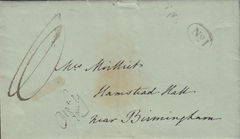 No 1
Mrs Moilliet
Hamstead Hall
near Birmingham